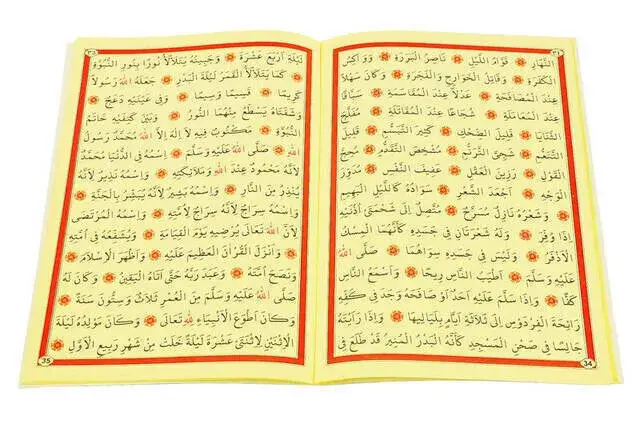 النَّهَارِ قَوَّامُ اللَّيْلِ نَاصِرُ الْبَرَرَةِ وَوَاكِسُ
الْكَفَرَةِ وَقَاتِلُ الْخَوَارِجِ وَالْفَجَرَةِ وَكَانَ سَهْلًا
عِنْدَ الْمُصَافَحَةِ عَدْلًا عِنْدَ الْمُقَاسَمَةِ سَبَّاقًا
عِنْدَ الْمُعَامَلَةِ شُجَاعًا عِنْدَ الْمُقَاتَلَةِ مُفَلَّجَ
الثَّنَايَا قَلِيلَ الضِّحْكِ كَثِيرَ التَّبَسُّمِ قَلِيلَ
التَّنَعُّمِ شَجِيَّ التَّرَنُّمِ مُشَخَّصَ التَّقَدُّمِ صَحِيحَ
الْقَوْلِ رَزِينَ الْعَقْلِ عَفِيفَ النَّفْسِ مُدَوَّرَ
الْوَجْهِ اَجْعَدَ الشَّعْرِ سَوَادُهُ كَاللَّيْلِ الْبَهِيمِ
وَشَعْرُهُ نَازِلٌ مُسَرَّحٌ مُتَّصِلٌ اِلَى شَحْمَتَىْ اُذُنَيْهِ
اِذَا وُفِّرَ وَلَهُ شَعْرَتَانِ فِى جَسَدِهِ كَاَنَّهُمَا الْمِسْكُ
الْاَذْفَرُ وَلَيْسَ فِى جَسَدِهِ سِوَاهُمَا صَلَّى اللهُ
عَلَيْهِ وَسَلَّمَ اَطْيَبُ النَّاسِ رِيحًا وَاَسْمَعُ النَّاسِ
كَفًّا وَاِذَا سَلَّمَ عَلَيْهِ اَحَدٌ اَوْ صَافَحَهُ وَجَدَ فِى كَفِّهِ
رَائِحَةَ الْفِرْدَوْسِ اِلَى ثَلَاثَةِ اَيَّامٍ بِلَيَالِيهَا وَاِذَا رَاَيْتَهُ
جَالِسًا فِى صَحْنِ الْمَسْجِدِ كَاَنَّهُ الْبَدْرُ الْمُنِيرُ قَدْ طَلَعَ فِى
34
٣٥
لَيْلَةِ اَرْبَعَ عَشْرَةَ وَجَبِينُهُ يَتَلَأْلَأُ نُورًا بِنُورِ النُّبُوَّةِ
كَمَا يَتَلَأْلَأُ الْقَمَرُ لَيْلَةَ الْبَدْرِ جَعَلَهُ اللهُ رَسُولًا
كَرِيمًا قَسِيمًا وَسِيمًا وَفِى عَيْنَيْهِ دَعَجٌ
وَشَفَتَاهُ يَسْطَعُ مِنْهُمَا النُّورُ وَبَيْنَ كَتِفَيْهِ خَاتَمُ
النُّبُوَّةِ مَكْتُوبٌ فِيهِ لَا اِلَهَ اِلَّا اللهُ مُحَمَّدٌ رَسُولُ
اللهِ صَلَّى اللهُ عَلَيْهِ وَسَلَّمَ اِسْمُهُ فِى الدُّنْيَا مُحَمَّدٌ
لِاَنَّهُ مَحْمُودٌ عِنْدَ اللهِ وَمَلَائِكَتِهِ وَاِسْمُهُ نَذِيرٌ لِاَنَّهُ
يُنْذِرُ مِنَ النَّارِ وَاِسْمُهُ بَشِيرٌ لِاَنَّهُ يُبَشِّرُ بِالْجَنَّةِ
وَاِسْمُهُ سِرَاجٌ لِاَنَّهُ سِرَاجٌ لِاُمَّتِهِ وَاِسْمُهُ الْمُرْتَضَى
لِاَنَّ اللهَ تَعَالَى يُرْضِيهِ يَوْمَ الْقِيَامَةِ وَيُشَفِّعُهُ فِى اُمَّتِهِ
وَاَنْزَلَ الْقُرْاٰنَ الْعَظِيمَ عَلَيْهِ وَاَظْهَرَ الْاِسْلَامَ
وَنَصَحَ اُمَّتَهُ وَعَبَدَ رَبَّهُ حَتَّى اَتَاهُ الْيَقِينُ وَكَانَ لَهُ
صَلَّى اللهُ عَلَيْهِ وَسَلَّمَ مِنَ الْعُمْرِ ثَلَاثٌ وَسِتُّونَ سَنَةً
وَكَانَ اَطْوَعَ الْاَنْبِيَاءِ لِلّٰهِ تَعَالَى وَكَانَ مَوْلِدُهُ لَيْلَةَ
الْاِثْنَيْنِ لِاثْنَتَىْ عَشْرَةَ لَيْلَةً خَلَتْ مِنْ شَهْرِ رَبِيعِ الْاَوَّلِ
35